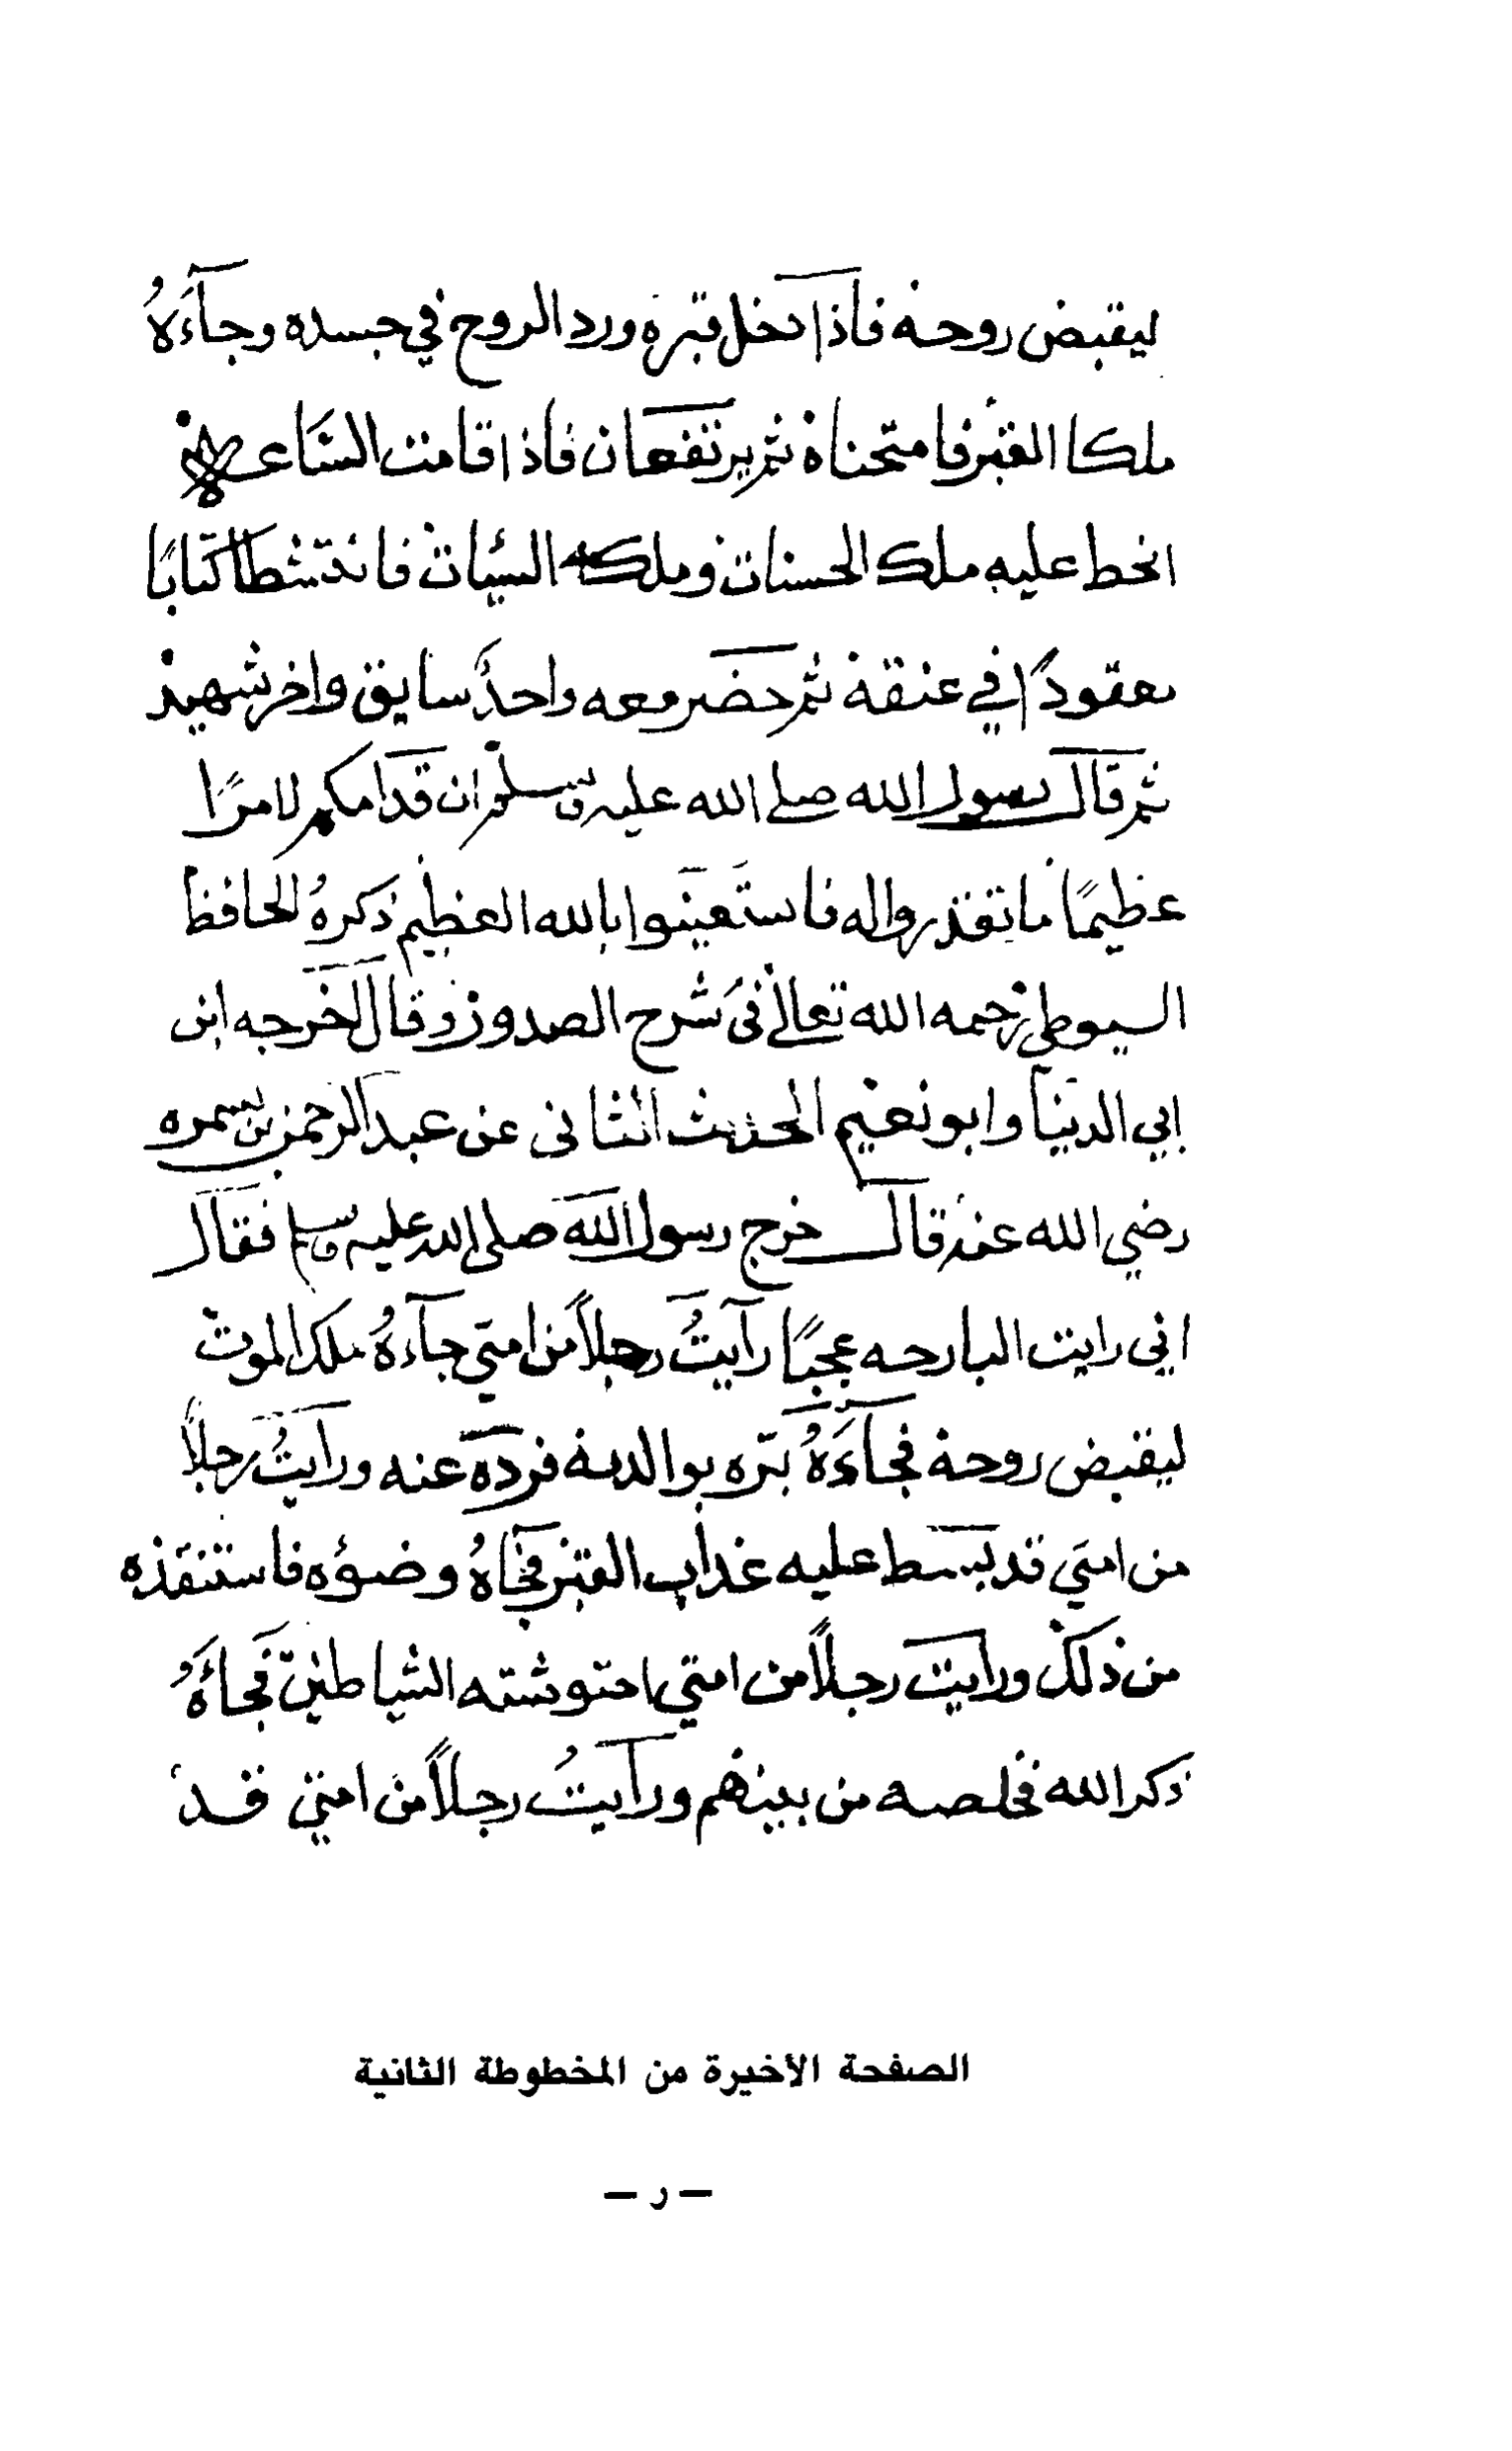 ليقبض روحه فاذا ادخل قبره ورد الروح في جسده وجآءَهُ
ملكا القبر فامتحناه ثم يرتفعان فاذا قامت السَّاعة
انحط عليه ملك الحسنات وملك السيّات فانتشطا كتابًا
معقودًا في عنقه ثم حضر معه واحدٌ سايق واخر شهيد
ثم قال رسول الله صلى الله عليه وسلم ان قدامكم لامرًا
عظيمًا ما تقدرواله فاستعينوا بالله العظيم ذكرهُ الحافظ
السيوطي رحمه الله تعالى في شرح الصدور وقال اخرجه ابن
ابي الدنيا وابو نعيم الحديث الثاني عن عبد الرحمن بن سمره
رضي الله عنه قال خرج رسول الله صلى الله عليه وسلم فقال
اني رايت البارحه عجبًا رآيتُ رجلاً من امتي جآءهُ ملك الموت
ليقبض روحه فجآءَهُ برّه بوالديه فردّه عنه ورآيتُ رجلاً
من امتي قد بسط عليه عذاب القبر فجآهُ وضوؤه فاستنقذه
من ذلك ورايت رجلاً من امتي احتوشته الشياطين فجاءَهُ
ذكر الله فخلصه من بينهم ورآيتُ رجلاً من امتي قد
الصفحة الأخيرة من المخطوطة الثانية
– ر –